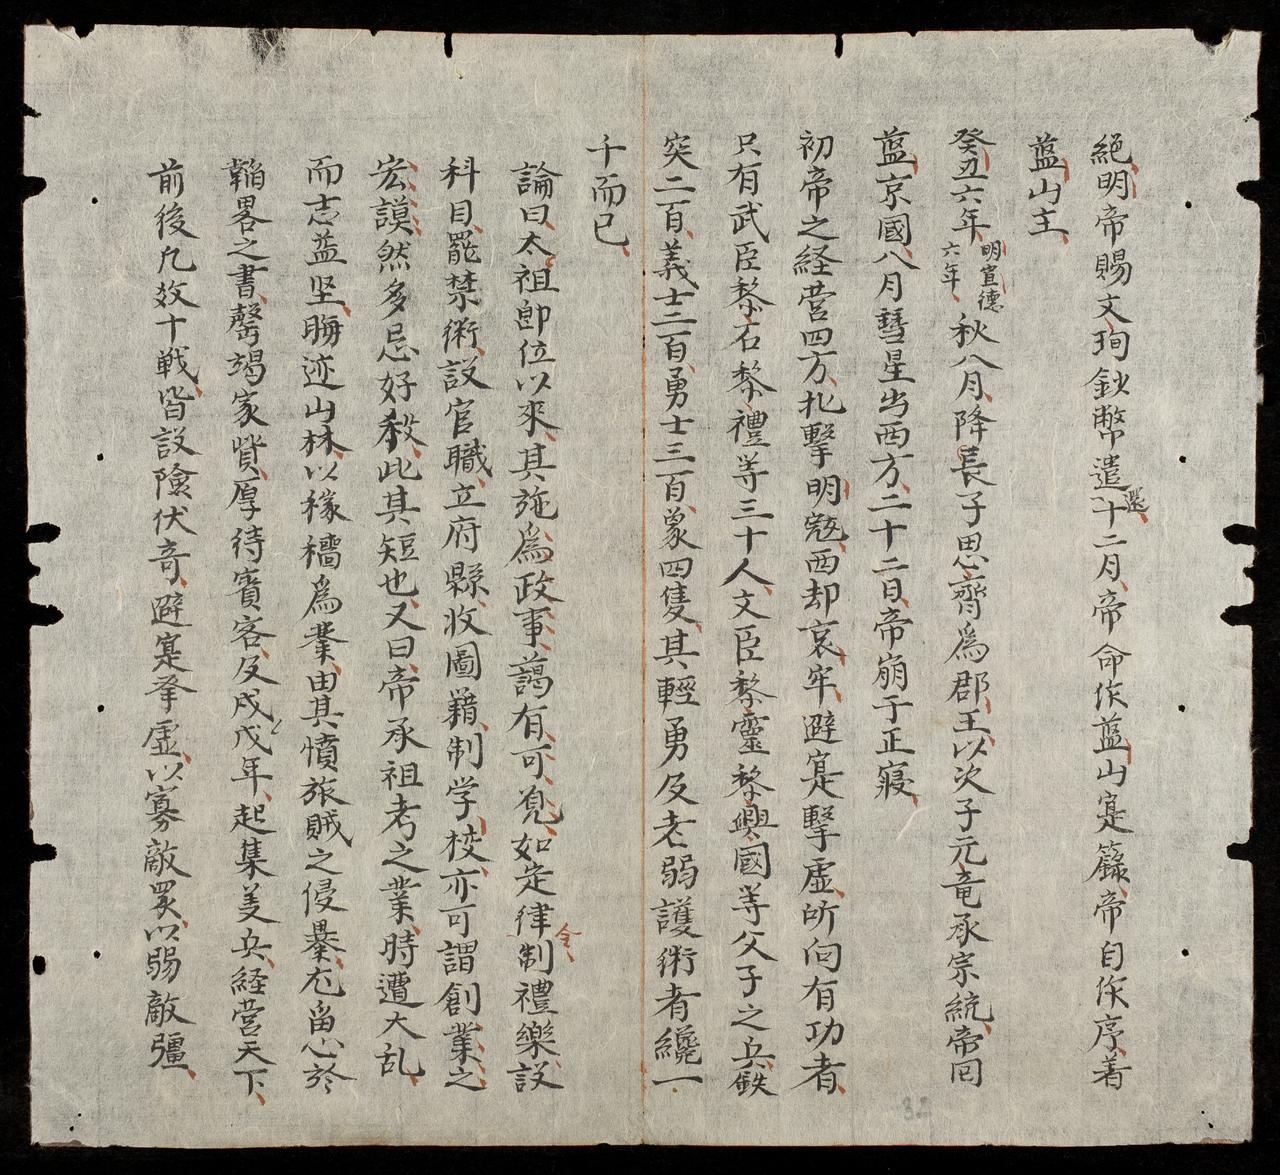 絕明帝賜文珣鈔幣遣還十二月帝命作藍山寔籙帝自作序著
藍山主
癸丑六年明宣德六年秋八月降長子思齊爲郡王以次子元竜承宗統帝囘
藍京國八月彗星出西方二十二日帝崩于正寢
初帝之経营四方北擊明寇西却哀牢避寔擊虛所向有功者
只有武臣黎石黎禮等三十人文臣黎靈黎興國等父子之兵鉄
突二百義士二百勇士三百象四隻其輕勇及老弱護術者纔一
千而已
論曰太祖即位以來其施爲政事藹有可覌如定律令制禮樂設
科目罷禁術設官職立府縣收圖籍制学校亦可謂創業之
宏謨然多忌好殺此其短也又曰帝承祖考之業時遭大乱
而志益坚晦迹山林以稼穡爲業由其憤旅賊之侵暴尤畱心於
韜畧之書罄竭家貲厚待賓客及戌戊年起集義兵経营天下
前後凢数十戦皆設險伏奇避寔擊虛以寡敵眾以弱敵彊